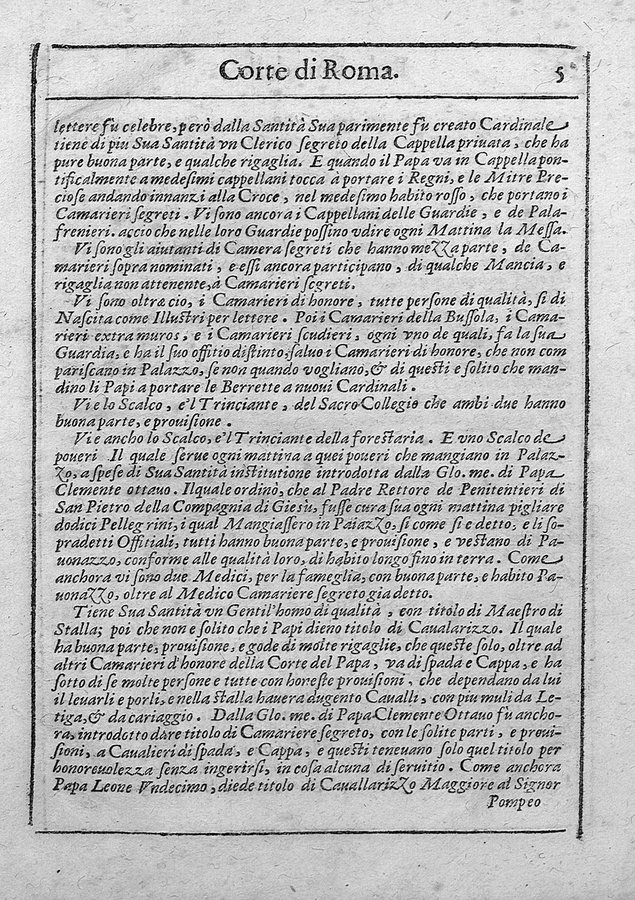 Corte di Roma. 5
lettere fù celebre, però dalla Santità Sua parimente fù creato Cardinale
tiene di piu Sua Santità vn Clerico segreto della Cappella priuata, che hà
pure buona parte, e qualche rigaglia. E quando il Papa va in Cappella pon-
tificalmente a medesimi cappellani tocca à portare i Regni, e le Mitre Pre-
ciose andando innanzi alla Croce, nel medesimo habito rosso, che portano i
Camarieri segreti. Vi sono ancora i Cappellani delle Guardie, e de Pala-
frenieri. accio che nelle loro Guardie possino vdire ogni Mattina la Messa.
Vi sono gli aiutanti di Camera segreti che hanno mezza parte, de Ca-
marieri sopra nominati, e essi ancora participano, di qualche Mancia, e
rigaglia non attenente, à Camarieri segreti.
Vi sono oltra cio, i Camarieri di honore, tutte persone di qualità, si di
Nascita come Illustri per lettere. Poi i Camarieri della Bussola, i Cama-
rieri extra muros, e i Camarieri scudieri, ogni vno de quali, fa la sua
Guardia, e hà il suo offitio distinto, saluo i Camarieri di honore, che non com
pariscano in Palazzo, se non quando vogliano, & di questi e solito che man-
dino li Papi a portare le Berrette a nuoui Cardinali.
Vi e lo Scalco, e'l Trinciante, del Sacro Collegio che ambi due hanno
buona parte, e prouisione.
Vi e ancho lo Scalco, e'l Trinciante della forestaria. E vno Scalco de
poueri Il quale serue ogni mattina a quei poueri che mangiano in Palaz-
zo, a spese di Sua Santità institutione introdotta dalla Glo. me. di Papa
Clemente ottauo. Il quale ordinò, che al Padre Rettore de Penitentieri di
San Pietro della Compagnia di Giesù, fusse cura sua ogni mattina pigliare
dodici Pellegrini, i qual Mangiassero in Palazzo, si come si e detto, e li so-
pradetti Offitiali, tutti hanno buona parte, e prouisione, e vestano di Pa-
uonazzo, conforme alle qualità loro, di habito longo fino in terra. Come
anchora vi sono due Medici, per la fameglia, con buona parte, e habito Pa-
uonazzo, oltre al Medico Camariere segreto gia detto.
Tiene Sua Santità vn Gentil'homo di qualità, con titolo di Maestro di
Stalla; poi che non e solito che i Papi dieno titolo di Caualarizzo. Il quale
ha buona parte, prouisione, e gode di molte rigaglie, che queste solo, oltre ad
altri Camarieri d'honore della Corte del Papa, va di spada e Cappa, e ha
sotto di se molte persone e tutte con honeste prouisioni, che dependano da lui
il leuarli e porli, e nella stalla hauera dugento Caualli, con piu muli da Le-
tiga, & da cariaggio. Dalla Glo. me. di Papa Clemente Ottauo fù ancho-
ra, introdotto dare titolo di Camariere segreto, con le solite parti, e proui-
sioni, a Caualieri di spada, e Cappa, e questi teneuano solo quel titolo per
honoreuolezza senza ingerirsi, in cosa alcuna di seruitio. Come anchora
Papa Leone Vndecimo, diede titolo di Cauallarizzo Maggiore al Signor
Pompeo